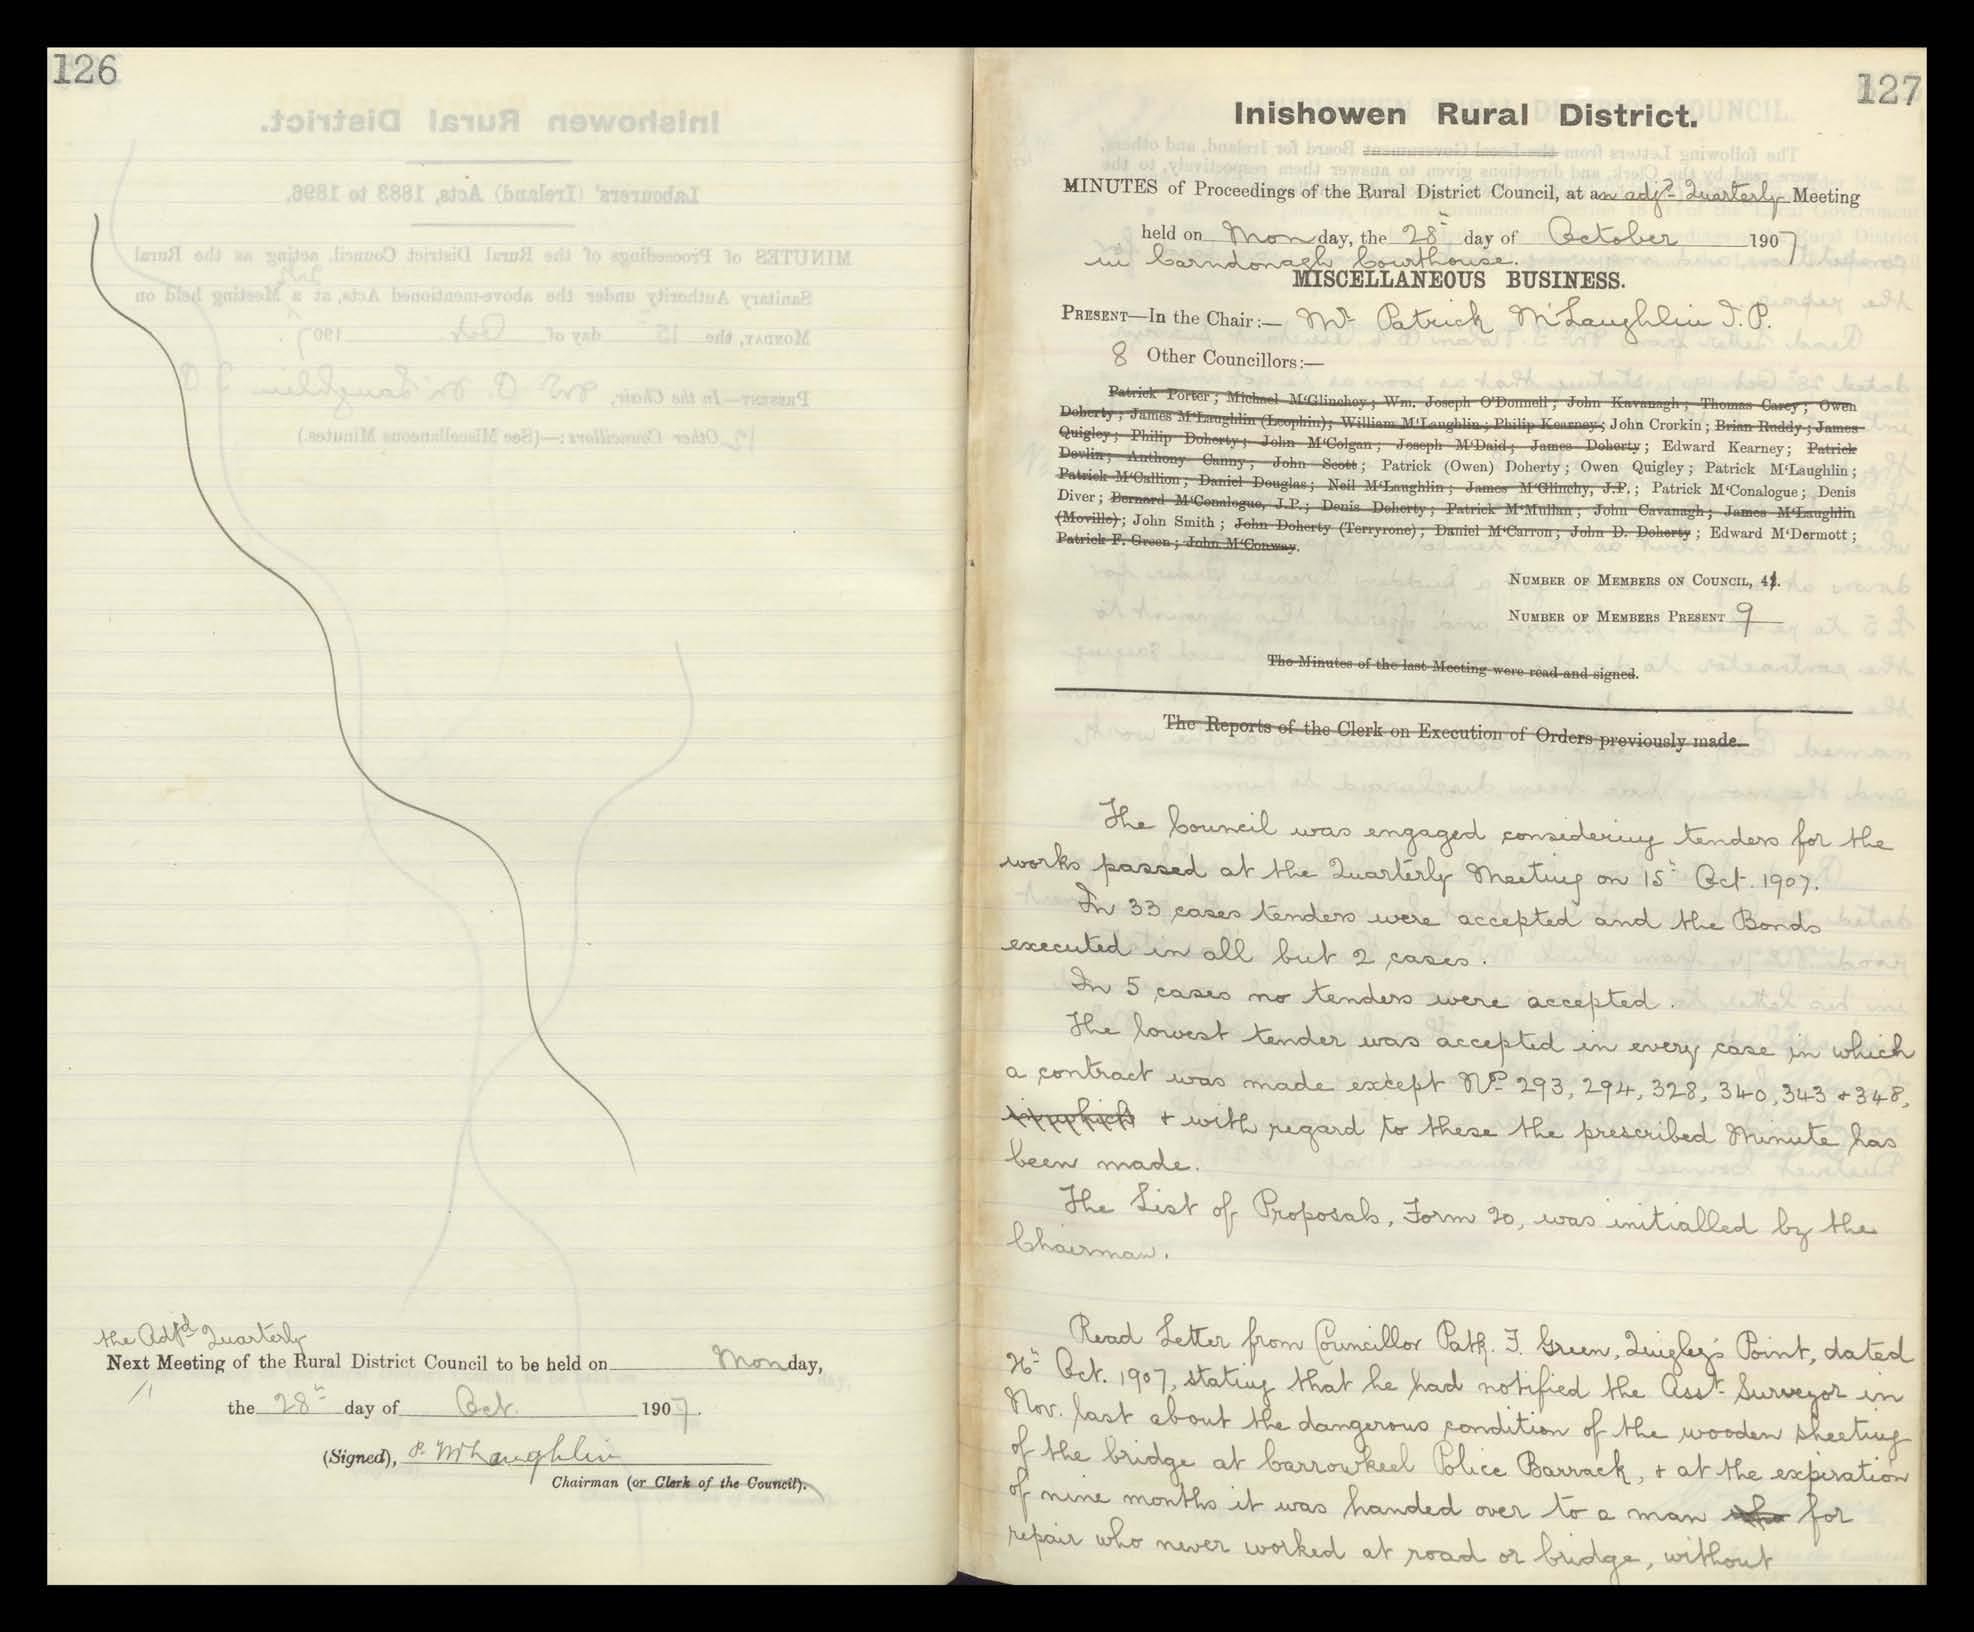 126
the Adjd Quarterly
Next Meeting of the Rural District Council to be held on Monday,
the 28th day of Oct. 1907.
(Signed), P. McLaughlin
Chairman (or Clerk of the Council).
127
Inishowen Rural District.
MINUTES of Proceedings of the Rural District Council, at an adjd Quarterly Meeting
held on Monday, the 28th day of October 1907
in Carndonagh Courthouse.
MISCELLANEOUS BUSINESS.
PRESENT—In the Chair:— Mr Patrick McLaughlin J.P.
8 Other Councillors:—
Patrick Porter; Michael M'Glinchey; Wm. Joseph O'Donnell; John Kavanagh; Thomas Carey; Owen
Doherty; James M'Laughlin (Leophin); William M'Laughlin; Philip Kearney; John Crorkin; Brian Ruddy; James
Quigley; Philip Doherty; John M'Colgan; Joseph M'Daid; James Doherty; Edward Kearney; Patrick
Devlin; Anthony Canny; John Scott; Patrick (Owen) Doherty; Owen Quigley; Patrick M'Laughlin;
Patrick M'Callion; Daniel Douglas; Neil M'Laughlin; James M'Glinchy, J.P.; Patrick M'Conalogue; Denis
Diver; Bernard M'Conalogue, J.P.; Denis Doherty; Patrick M'Mullan; John Cavanagh; James M'Laughlin
(Moville); John Smith; John Doherty (Terryrone); Daniel M'Carron; John D. Doherty; Edward M'Dermott;
Patrick F. Green; John M'Conway.
NUMBER OF MEMBERS ON COUNCIL,
NUMBER OF MEMBERS PRESENT 9
The Minutes of the last Meeting were read and signed.
The Reports of the Clerk on Execution of Orders previously made.
The Council was engaged considering tenders for the
works passed at the Quarterly Meeting on 15th Oct. 1907.
In 33 cases tenders were accepted and the Bonds
executed in all but 2 cases.
In 5 cases no tenders were accepted.
The lowest tender was accepted in every case in which
a contract was made except No 293, 294, 328, 340, 343 & 348,
in which & with regard to these the prescribed Minute has
been made.
The List of Proposals, Form 20, was initialled by the
Chairman.
Read Letter from Councillor Patk. F. Green, Quigley's Point, dated
26th Oct. 1907, stating that he had notified the Asst Surveyor in
Nov. last about the dangerous condition of the wooden sheeting
of the bridge at Carrowkeel Police Barrack, & at the expiration
of nine months it was handed over to a man who for
repair who never worked at road or bridge, without